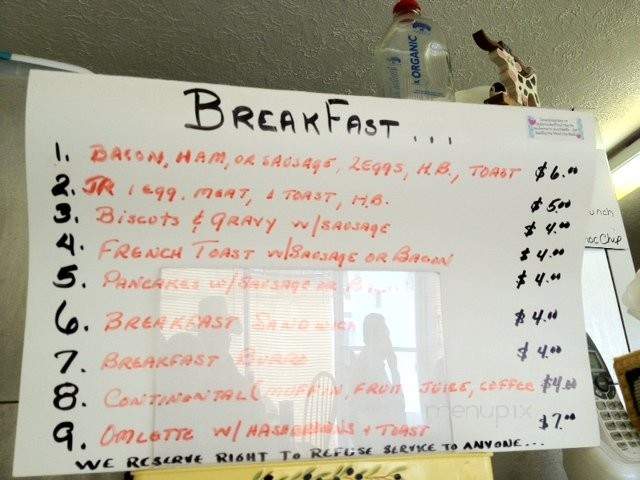 BREAKFAST...
1. BACON, HAM, OR SAUSAGE, 2EGGS, H.B., TOAST $6.00
2. JR 1 EGG, MEAT, 1 TOAST, H.B. $5.00
3. BISCOTS & GRAVY W/SAUSAGE $4.00
4. FRENCH TOAST W/SAUSAGE OR BACON $4.00
5. PANCAKES W/SAUSAGE OR $4.00
6. BREAKFAST SANDWICH $4.00
7. BREAKFAST $4.00
8. CONTINONTAL (MUFFIN, FRUIT JUICE, COFFEE $4.00
9. OMLETTE W/ HASHBROWNS & TOAST $7.00
WE RESERVE RIGHT TO REFUSE SERVICE TO ANYONE...
ORGANIC
unch
hoc Chip
menupix